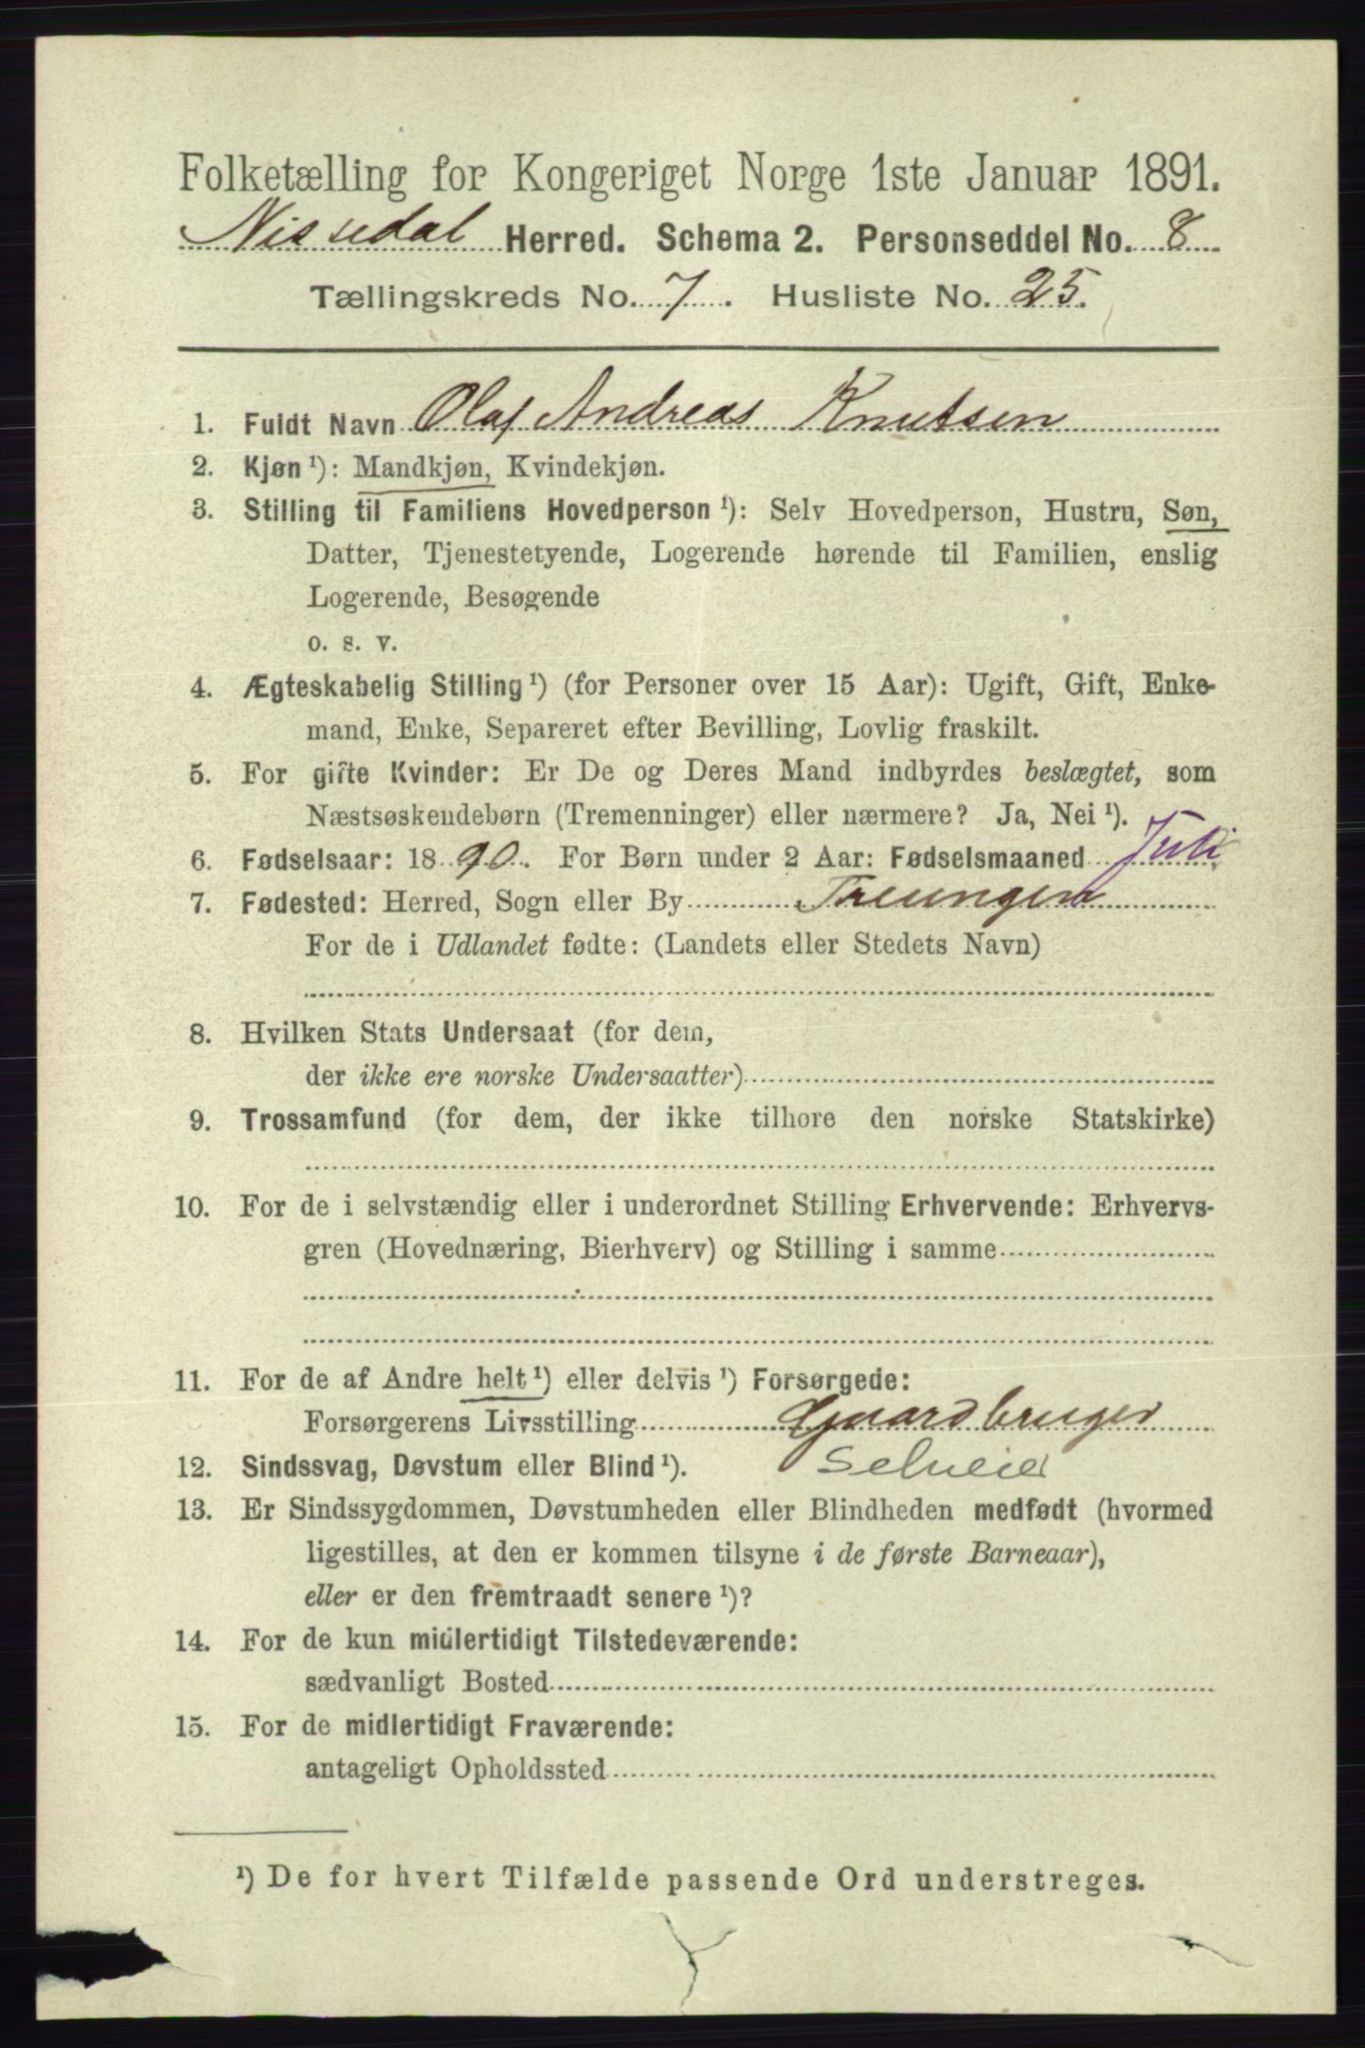 Folketælling for Kongeriget Norge 1ste Januar 1891.
Nissedal Herred. Schema 2. Personseddel No. 8
Tællingskreds No. 7. Husliste No. 25.
1. Fuldt Navn Olaf Andreas Knutsen
2. Kjøn ¹): Mandkjøn, Kvindekjøn.
3. Stilling til Familiens Hovedperson ¹): Selv Hovedperson, Hustru, Søn,
Datter, Tjenestetyende, Logerende hørende til Familien, enslig
Logerende, Besøgende
o. s. v.
4. Ægteskabelig Stilling ¹) (for Personer over 15 Aar): Ugift, Gift, Enke-
mand, Enke, Separeret efter Bevilling, Lovlig fraskilt.
5. For gifte Kvinder: Er De og Deres Mand indbyrdes beslægtet, som
Næstsøskendebørn (Tremenninger) eller nærmere? Ja, Nei ¹).
6. Fødselsaar: 1890. For Børn under 2 Aar: Fødselsmaaned Juli
7. Fødested: Herred, Sogn eller By Treungen
For de i Udlandet fødte: (Landets eller Stedets Navn)
8. Hvilken Stats Undersaat (for dem,
der ikke ere norske Undersaatter)
9. Trossamfund (for dem, der ikke tilhore den norske Statskirke)
10. For de i selvstændig eller i underordnet Stilling Erhvervende: Erhvervs-
gren (Hovednæring, Bierhverv) og Stilling i samme
11. For de af Andre helt ¹) eller delvis ¹) Forsørgede:
Forsørgerens Livsstilling Gaardbruger
12. Sindssvag, Døvstum eller Blind ¹). Selveier
13. Er Sindssygdommen, Døvstumheden eller Blindheden medfødt (hvormed
ligestilles, at den er kommen tilsyne i de første Barneaar),
eller er den fremtraadt senere ¹)?
14. For de kun midlertidigt Tilstedeværende:
sædvanligt Bosted
15. For de midlertidigt Fraværende:
antageligt Opholdssted
¹) De for hvert Tilfælde passende Ord understreges.